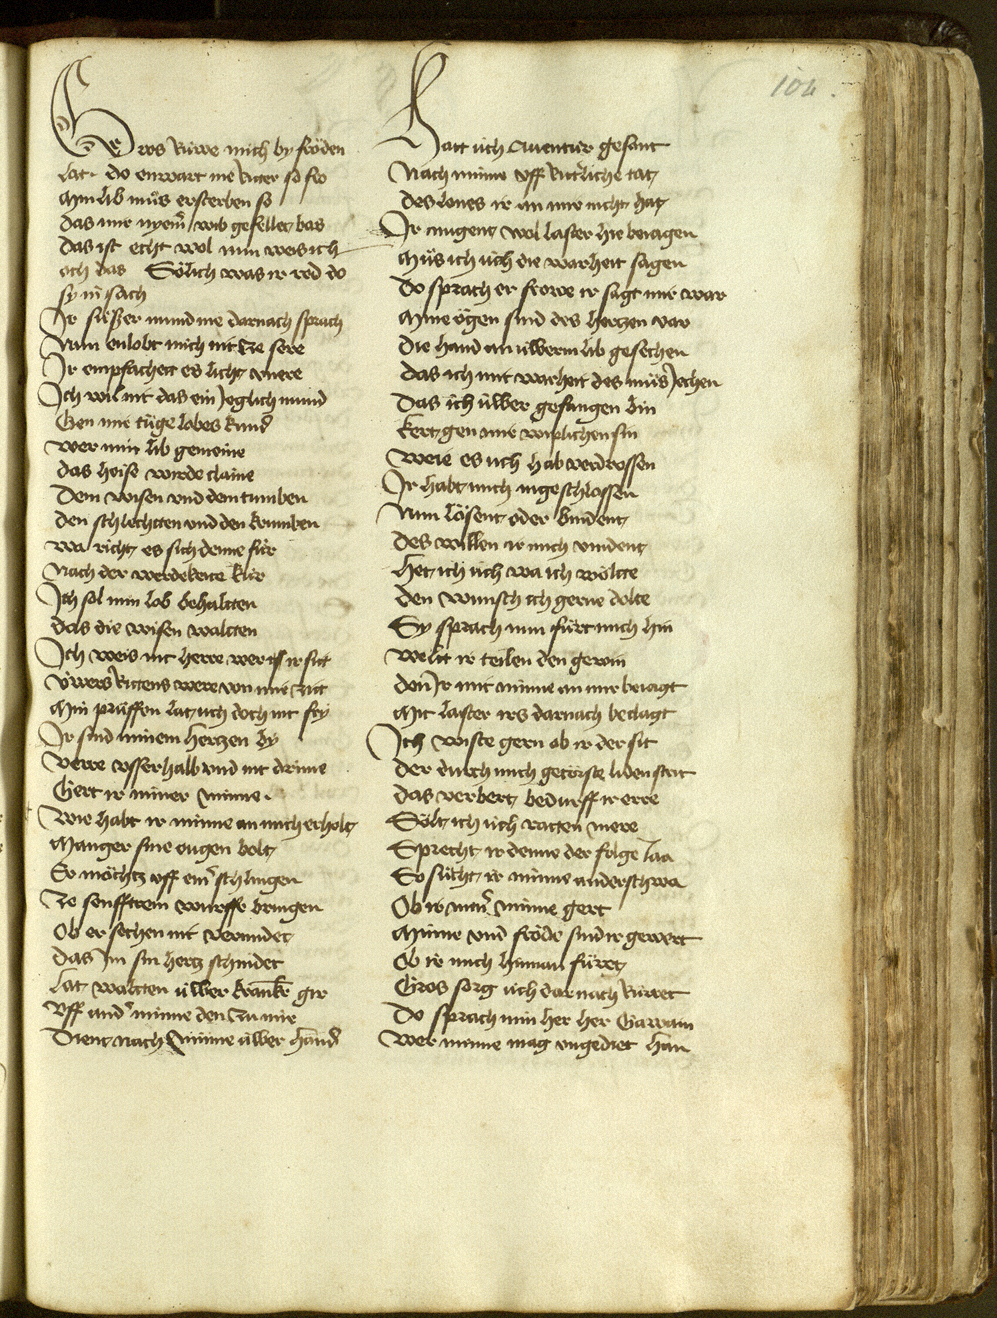 104.
Gros kurre mich by fröden
lat. do enwart me ritter so fro
Min lib mus ersterben so
das mir nyemer wib gefellet bas
das ist echt wol nun weis ich
och das Sölich was ir red do
sy in sach
Ir süsser mund me darnach sprach
Nun enlobt mich nit ze sere
Ir empfachett es licht unere
Ich wil nit das ein Jeglich mund
Gen mir tüge lobes kund
wer min lib gemeine
das heise wirde claine
Dem wisen vnd dem tumben
den schlechtten vnd den krumben
wa richt es sich denne für
Nach der werdekeite kür
Ich sol min lob behaltten
das die wisen waltten
Ich weis nit herre wer ist ir sit
üwers rittens were von mir zit
Min prüffen lat üch doch nit fry
Ir sind minem hertzen by
Verre usserhalb vnd nit drinne
Gert ir miner minne.
Wie habt ir minne an mich erholt
Manger sine ougen bolt
Er möchtz uff einer schlingen
Ze senfftrem wurffe bringen
Ob er sechen nit vermidet
das Im sin hertz schnidet
Lat waltten üwer kranke gir
Uff ander minne den zu mir
Dient nach minne üwer hand
Hatt üch aventür gesant
Nach minne uff ritterliche tat
des lones ir an mir nicht hat
Ir mugent wol laster hie beiagen
Müs ich üch die warheit sagen
Do sprach er frowe ir sagt mir war
Mine ögen sind des hertzen var
die hand an üwerm lib gesechen
das ich mit warheit des müs Jechen
Das ich üwer gefangen bin
kert gen mir wiplichen sin
Weie es üch hab verdrossen
Ir habt mich ingeschlossen
Nun lösent oder bindent
Des willen ir mich vindent
Het ich üch wa ich wöltte
den wunsch ich gerne dolte
Sy sprach nun fürt mich hin
welit ir teilen den gewin
den Ir mit minne an mir beiagt
Mit laster irs darnach beclagt
Ich wiste gern ob ir der sit
der durch mich getörste liden strit
das verbert bedurff ir erre
Sölt ich üch ratten mere
Sprecht ir denne der folge Jaa
So sücht ir minne anderschwa
Ob ir miner minne gert
Minne vnd fröde sind ir gewert
Ob ir mich hinnan füret
Gros sorg üch darnach rürret
Do sprach min her her Gawan
Wer minne mag ungediet han